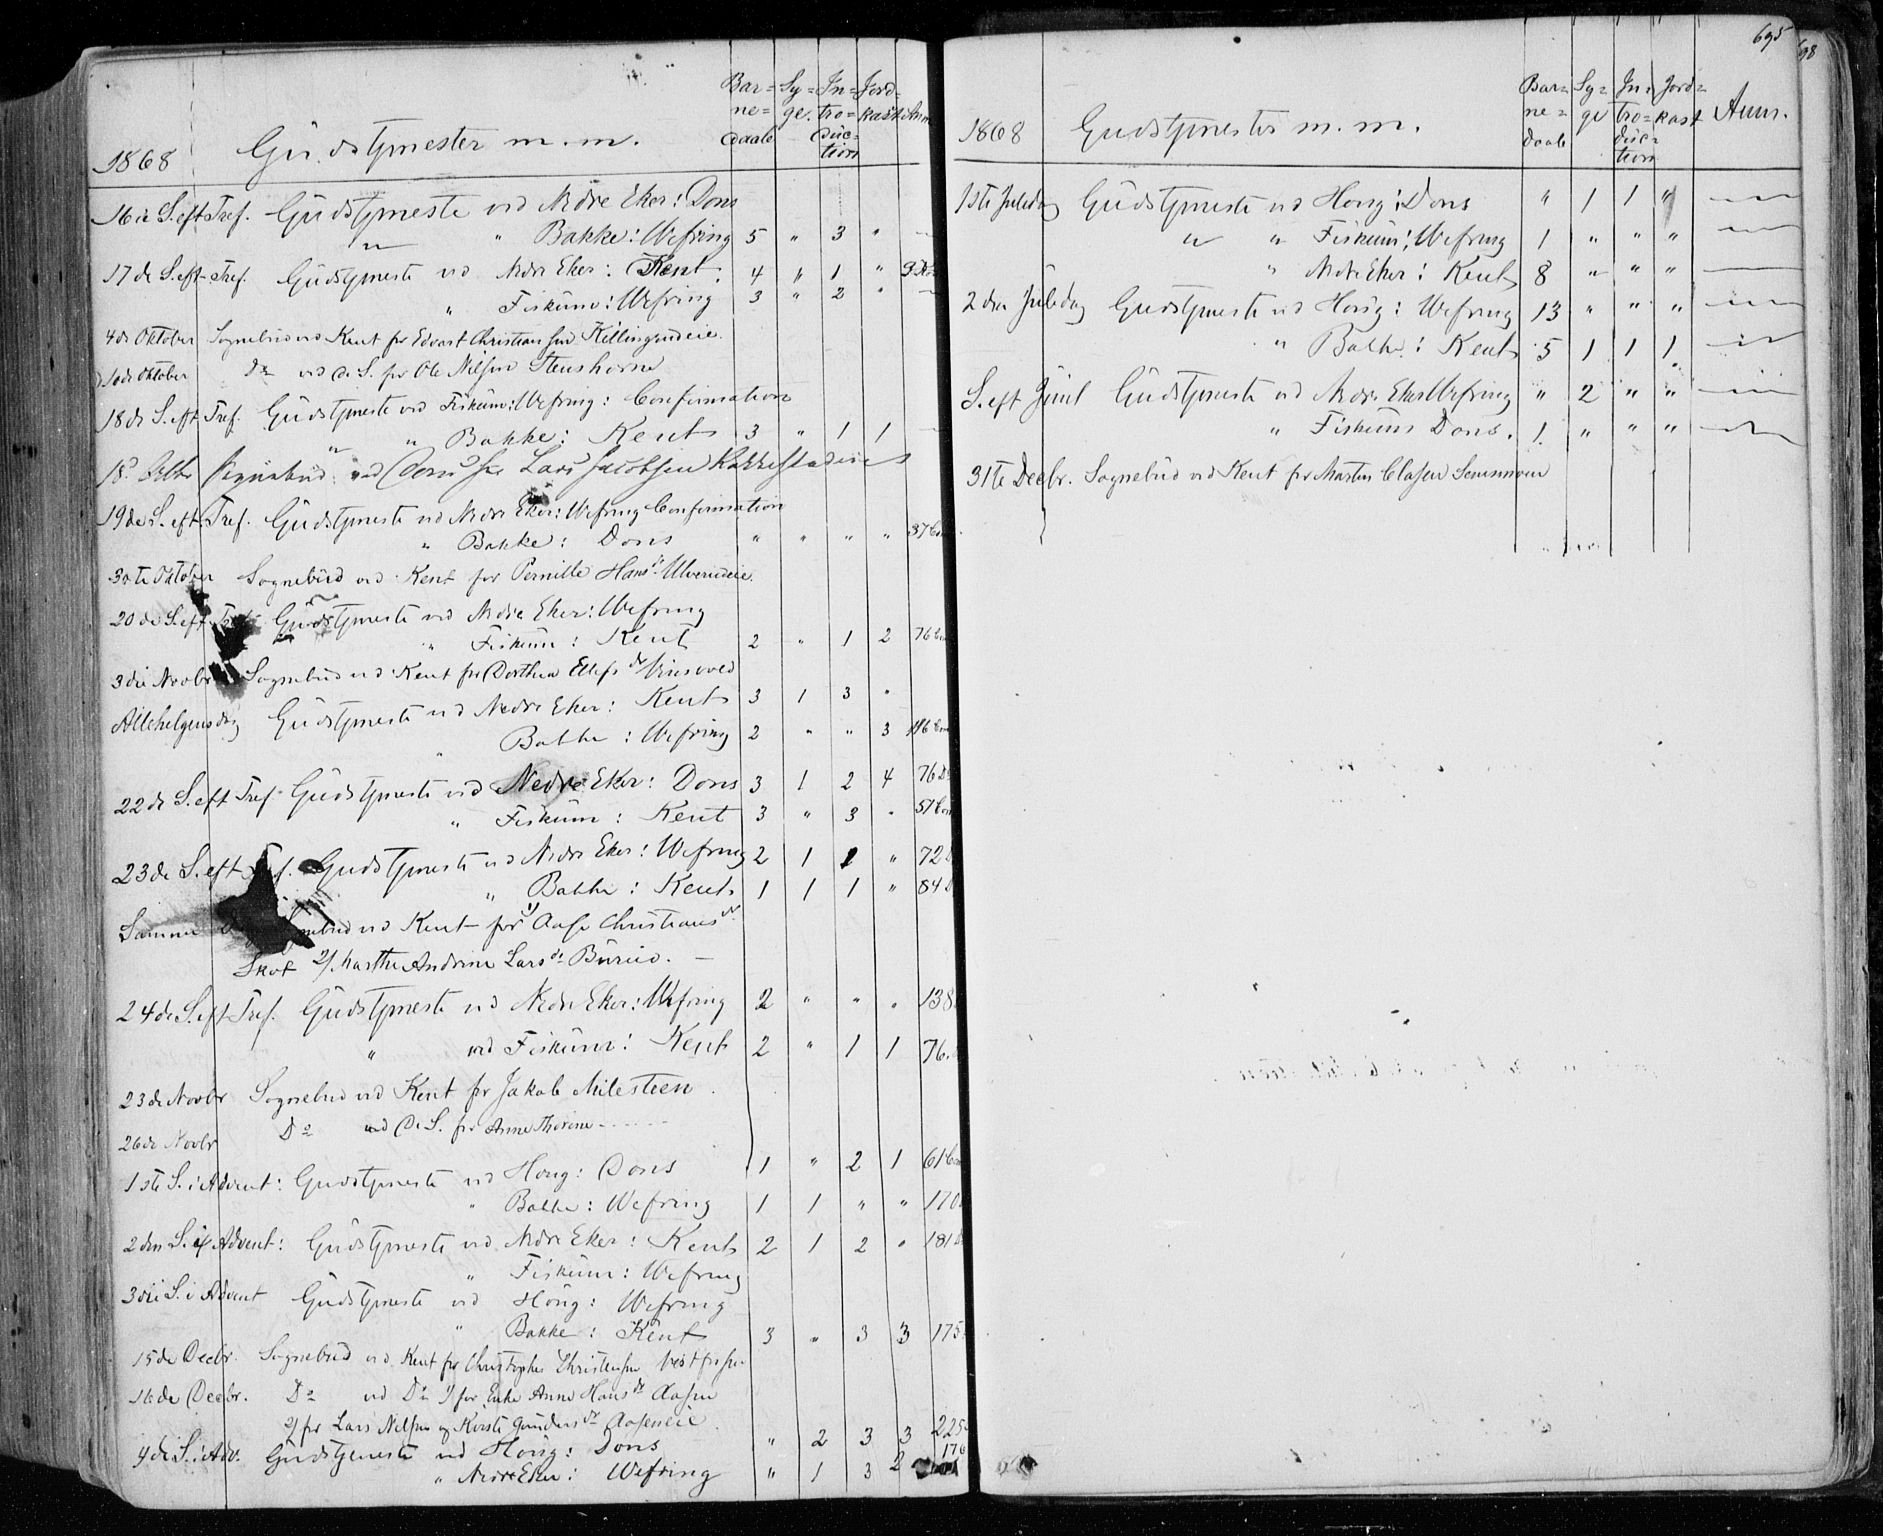 Bar= Sy= In= Jord=
ne= ge. tro= kast Anm
daab duc=
tion
1868 Gudstjenester m. m.
16de S. eft Tref. Gudstjeneste ved Nedre Eker: Dons
" " Bakke: Wefring 5 " 3 "
17de S. eft Tref. Gudstjeneste ved Nedre Eker: Kent. 4 " 1 "
" Fiskum: Wefring 3 " 2 "
4de Oktober Sognebud ved Kent for Edvart Christiansen
10de Oktober Do ved d. S. for Ole Nilsen Stenshorne
18de S. eft Tref. Gudstjeneste ved Fiskum: Wefring: Confirmation
" " Bakke: Kent 3 " 1 1
18de Octbr Sognebud ved Dons for Lars Jacobsen
19de S. eft. Tref. Gudstjeneste ved Nedre Eker: Wefring Confirmation
" Bakke: Dons " " " " 37 Com
30te Oktober Sognebud ved Kent for Pernille Hansdr Ulverudeie.
20de S. eft Gudstjeneste ved Nedre Eker: Wefring
" Fiskum: Kent 2 " 1 2 76 Com
3die Novbr Sognebud ved Kent for Dorthea Ellefsdr
Allehelgensdag Gudstjeneste ved Nedre Eker: Kent 3 1 3 "
" Bakke: Wefring 2 " " 3 116 Com
22de S. eft Tref Gudstjeneste ved Nedre Eker: Dons 3 1 2 4 76 D
" Fiskum: Kent 3 " 3 " 51 Com
23de S. eft Tref. Gudstjeneste ved Nedre Eker: Wefring 2 1 1 " 72
" Bakke: Kent 1 1 1 " 84
Samme D Sognebud ved Kent for 1/ Aase Christiansdr
2/ Marthe Andrine Larsdr Burud.
24de S. eft Tref. Gudstjeneste ved Nedre Eker: Wefring 2 " " " 138
" ved Fiskum: Kent 2 " 1 1 76.
23de Novbr Sognebud ved Kent for Jakob Milesteen.
26de Novbr Do ved d. S. for Anne Thorine
1ste S. i Advent: Gudstjeneste ved Houg: Dons 1 " 2 1 61 Com
" Bakke: Wefring 1 1 " " 170
2den S. i Advent: Gudstjeneste ved Nedre Eker: Kent 2 1 2 " 181
" Fiskum: Wefring
3die S. i Advent Gudstjeneste ved Houg: Wefring
" Bakke: Kent 3 " 3 3 175
15de Decbr. Sognebud ved Kent for Christopher Christensen Vestfossen
16de Decbr. Do ved Do 1/ for Enke Anne Hansdr Aasen
2/ for Lars Nilsen og Kirsti Gundersdr Aaseneie. 225
4de S. i Adv. Gudstjeneste ved Houg: Dons " 2 3 3 176
" Nedre Eker: Wefring " 1 3 2
695
698
Bar= Sy= In= Jord=
ne= ge tro= kast Anm.
daab duc=
tion
1868 Gudstjenester m. m.
1ste Juledag Gudstjeneste ved Houg: Dons " 1 1 "
" " Fiskum: Wefring 1 " " "
" Nedre Eker: Kent 8 " " "
2den Juledag Gudstjeneste ved Houg: Wefring 13 " " "
" Bakke: Kent 5 1 1 1
S. eft Juul Gudstjeneste ved Nedre Eker Wefring " 2 " "
" Fiskum Dons. 1 " " "
31te Decbr. Sognebud ved Kent for Martin Clasen